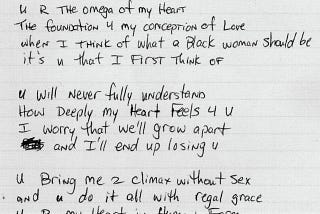 U R THE omega of my Heart
The foundation 4 my conception of Love
when I THINK of what a Black woman should be
it's u that I First Think of
u will never fully understand
How Deeply my Heart Feels 4 u
I worry that we'll grow apart
and I'll end up losing u
u Bring me 2 climax without sex
and u do it all with regal grace
u R my Heart in Human Form